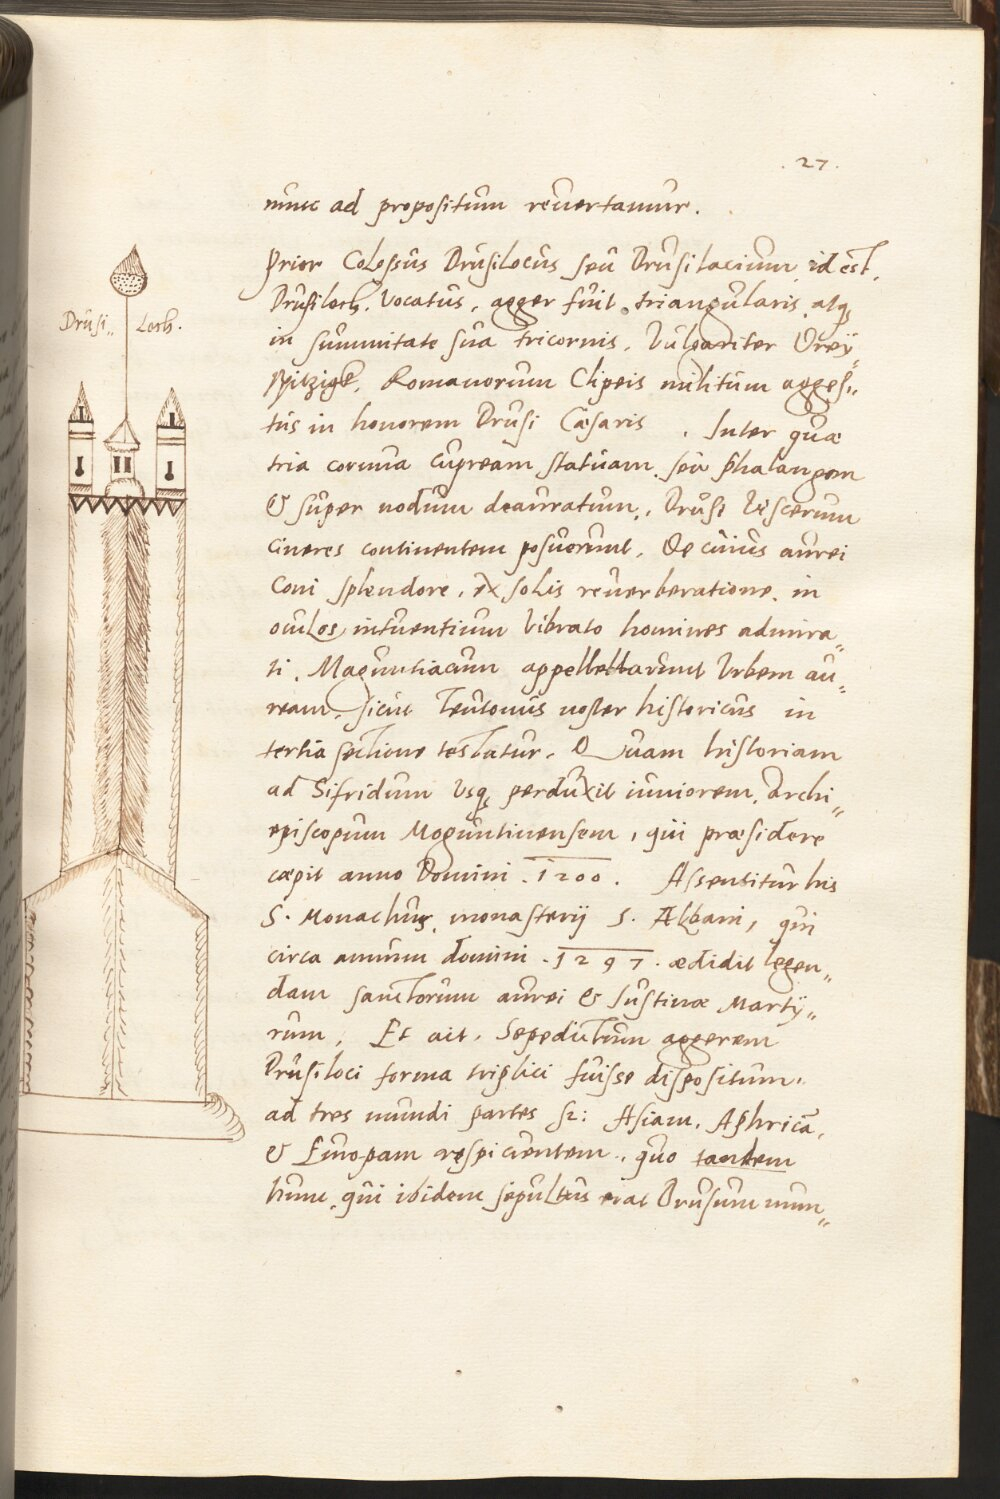 . 27 .
nunc ad propositum revertamur .
Drusi„ Loch .
Prior Colossus Drusilocus seu Drusilacium id est,
Drusiloch. Vocatus, agger fuit triangularis atq;
in summitate sua tricornis. Vulgariter Drey„
spitzigk. Romanorum Clipeis militum agges„
tus in honorem Drusi Cæsaris . Inter quæ
tria cornua cupream statuam seu phalangem
& super nodum deauratum, Drusi viscerum
cineres continentem posuerunt. De cuius aurei
Coni splendore, ex solis reverberatione in
oculos intuentium vibrato homines admira„
ti . Maguntiacum appellarunt Urbem au„
ream, sicut Teutonus noster historicus in
tertia sectione testatur. Quam historiam
ad Sifridum usq; perduxit iuniorem, Archi„
episcopum Moguntinensem, qui præsidere
cæpit anno Domini . 1200 . Assentitur his
S. Monachus, monasterij S. Albani, qui
circa annum domini . 1297 . ædidit legen„
dam sanctorum aurei & Justinæ Marty„
rum. Et ait. Sepedictum aggerem
Drusiloci forma triplici fuisse dispositum.
ad tres mundi partes sz: Asiam, Aphricã,
& Europam respicientem, quo tandem
hunc qui ibidem sepultus erat Drusum mun„